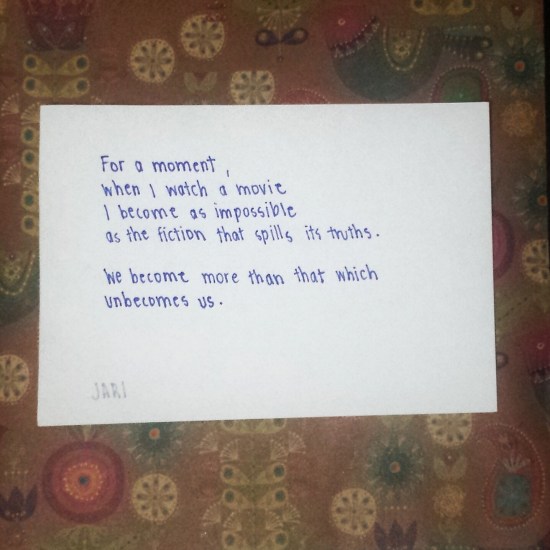 For a moment,
when I watch a movie
I become as impossible
as the fiction that spills its truths.
We become more than that which
unbecomes us.
JARI